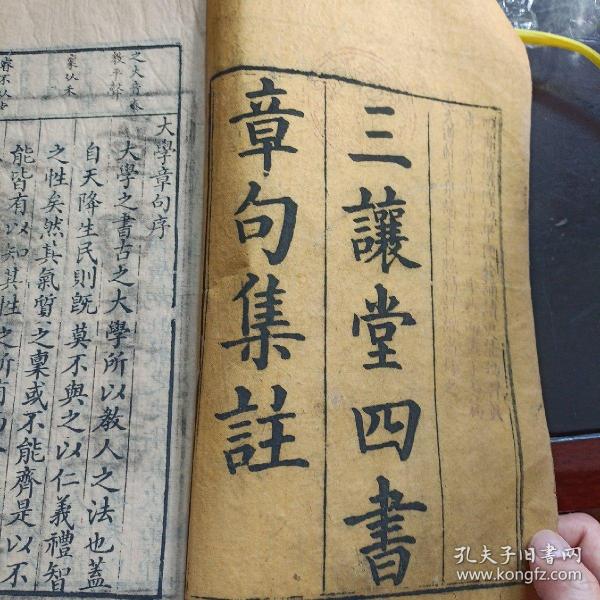 三讓堂四書
章句集註
大學章句序
大學之書古之大學所以教人之法也蓋
自天降生民則既莫不與之以仁義禮智
之性矣然其氣質之稟或不能齊是以不
能皆有以知其性之所有
孔夫子旧书网
www.kongfz.com